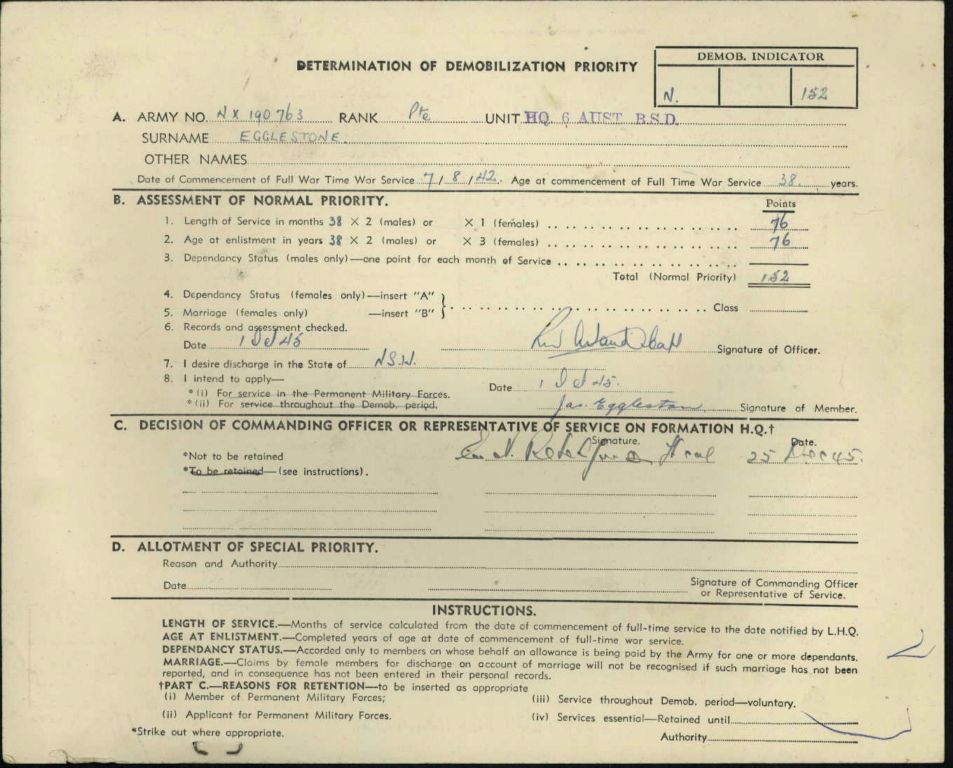 DETERMINATION OF DEMOBILIZATION PRIORITY
DEMOB. INDICATOR
N. 152
A. ARMY NO. NX 190763 RANK Pte UNIT HQ 6 AUST B.S.D.
SURNAME EGGLESTONE.
OTHER NAMES
Date of Commencement of Full War Time War Service 7/8/42. Age at commencement of Full Time War Service 38 years.
B. ASSESSMENT OF NORMAL PRIORITY.
Points
1. Length of Service in months 38 × 2 (males) or × 1 (females) 76
2. Age at enlistment in years 38 × 2 (males) or × 3 (females) 76
3. Dependancy Status (males only)—one point for each month of Service
Total (Normal Priority) 152
4. Dependancy Status (females only)—insert "A"
} Class
5. Marriage (females only) —insert "B"
6. Records and assessment checked.
Date 1 Oct 45 Signature of Officer.
7. I desire discharge in the State of N.S.W.
8. I intend to apply— Date 1 Oct 45.
*(i) For service in the Permanent Military Forces.
*(ii) For service throughout the Demob. period. Jas. Egglestone Signature of Member.
C. DECISION OF COMMANDING OFFICER OR REPRESENTATIVE OF SERVICE ON FORMATION H.Q.†
Signature. Date.
*Not to be retained 25 Dec 45.
*To be retained—(see instructions).
D. ALLOTMENT OF SPECIAL PRIORITY.
Reason and Authority
Date Signature of Commanding Officer
or Representative of Service.
INSTRUCTIONS.
LENGTH OF SERVICE.—Months of service calculated from the date of commencement of full-time service to the date notified by L.H.Q.
AGE AT ENLISTMENT.—Completed years of age at date of commencement of full-time war service.
DEPENDANCY STATUS.—Accorded only to members on whose behalf an allowance is being paid by the Army for one or more dependants.
MARRIAGE.—Claims by female members for discharge on account of marriage will not be recognised if such marriage has not been
reported, and in consequence has not been entered in their personal records.
†PART C.—REASONS FOR RETENTION—to be inserted as appropriate
(i) Member of Permanent Military Forces; (iii) Service throughout Demob. period—voluntary.
(ii) Applicant for Permanent Military Forces. (iv) Services essential—Retained until
*Strike out where appropriate. Authority